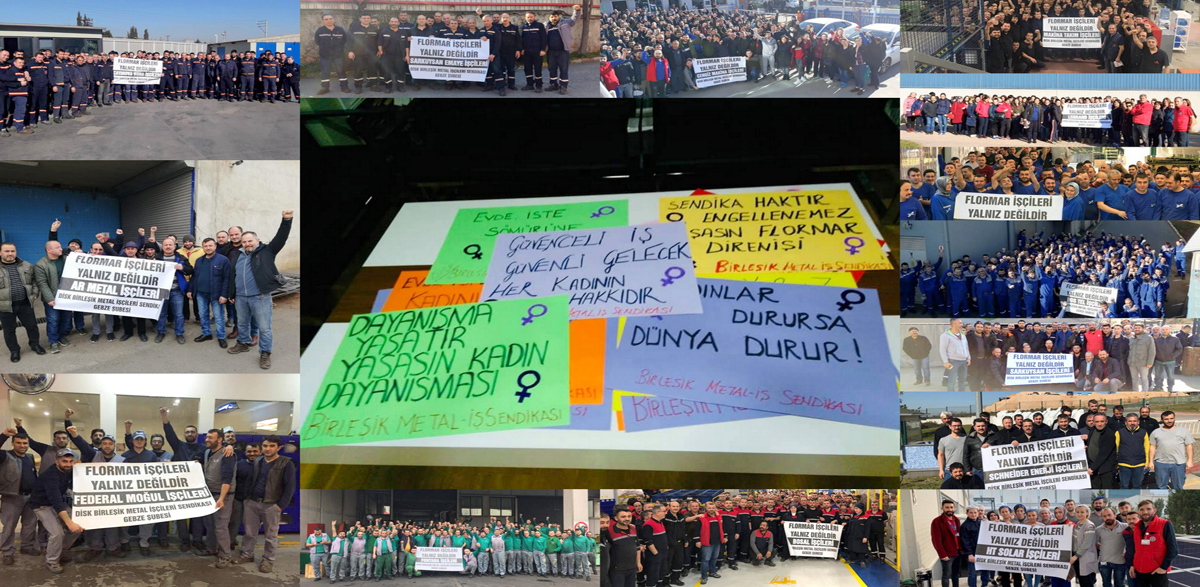 FLORMAR İŞÇİLERİ
YALNIZ DEĞİLDİR
DİSK BİRLEŞİK METAL İŞÇİLERİ SENDİKASI
GEBZE ŞUBESİ
FLORMAR İŞÇİLERİ
YALNIZ DEĞİLDİR
SARKUYSAN EMAYE İŞÇİLERİ
DİSK BİRLEŞİK METAL İŞÇİLERİ SENDİKASI
GEBZE ŞUBESİ
FLORMAR İŞÇİLERİ
YALNIZ DEĞİLDİR
CENGİZ MAKİNA İŞÇİLERİ
FLORMAR İŞÇİLERİ
YALNIZ DEĞİLDİR
MAKİNA TAKIM İŞÇİLERİ
FLORMAR İŞÇİLERİ
YALNIZ DEĞİLDİR
LEGRAND İŞÇİLERİ
FLORMAR İŞÇİLERİ
YALNIZ DEĞİLDİR
FLORMAR İŞÇİLERİ
YALNIZ DEĞİLDİR
FLORMAR İŞÇİLERİ
YALNIZ DEĞİLDİR
SARKUYSAN İŞÇİLERİ
DİSK BİRLEŞİK METAL İŞÇİLERİ SENDİKASI
GEBZE ŞUBESİ
FLORMAR İŞÇİLERİ
YALNIZ DEĞİLDİR
SCHNEİDER ENERJİ İŞÇİLERİ
DİSK BİRLEŞİK METAL İŞÇİLERİ SENDİKASI
FLORMAR İŞÇİLERİ
YALNIZ DEĞİLDİR
HT SOLAR İŞÇİLERİ
DİSK BİRLEŞİK METAL İŞÇİLERİ SENDİKASI
GEBZE ŞUBESİ
FLORMAR İŞÇİLERİ
YALNIZ DEĞİLDİR
AR METAL İŞÇİLERİ
DİSK BİRLEŞİK METAL İŞÇİLERİ SENDİK
GEBZE ŞUBESİ
FLORMAR İŞÇİLERİ
YALNIZ DEĞİLDİR
FEDERAL MOĞUL İŞÇİLERİ
DİSK BİRLEŞİK METAL İŞÇİLERİ SENDİKASI
GEBZE ŞUBESİ
FLORMAR İŞÇİLERİ
YALNIZ DEĞİLDİR
FLORMAR İŞÇİLERİ
YALNIZ DEĞİLDİR
BOSAL İŞÇİLERİ
DİSK BİRLEŞİK METAL İŞÇİLERİ SENDİKASI
GEBZE ŞUBESİ
EVDE, İŞTE
SÖMÜRÜNE
SENDİKA HAKTIR
ENGELLENEMEZ
YAŞASIN FLORMAR
DİRENİŞİ
BİRLEŞİK METAL-İŞ SENDİKASI
GÜVENCELİ İŞ
GÜVENLİ GELECEK
HER KADININ
HAKKIDIR
METAL-İŞ SENDİKASI
KADINI
DAYANIŞMA
YAŞATIR
YAŞASIN KADIN
DAYANIŞMASI
BİRLEŞİK METAL-İŞ SENDİKASI
DURURSA
DÜNYA DURUR!
BİRLEŞİK METAL-İŞ SENDİKASI